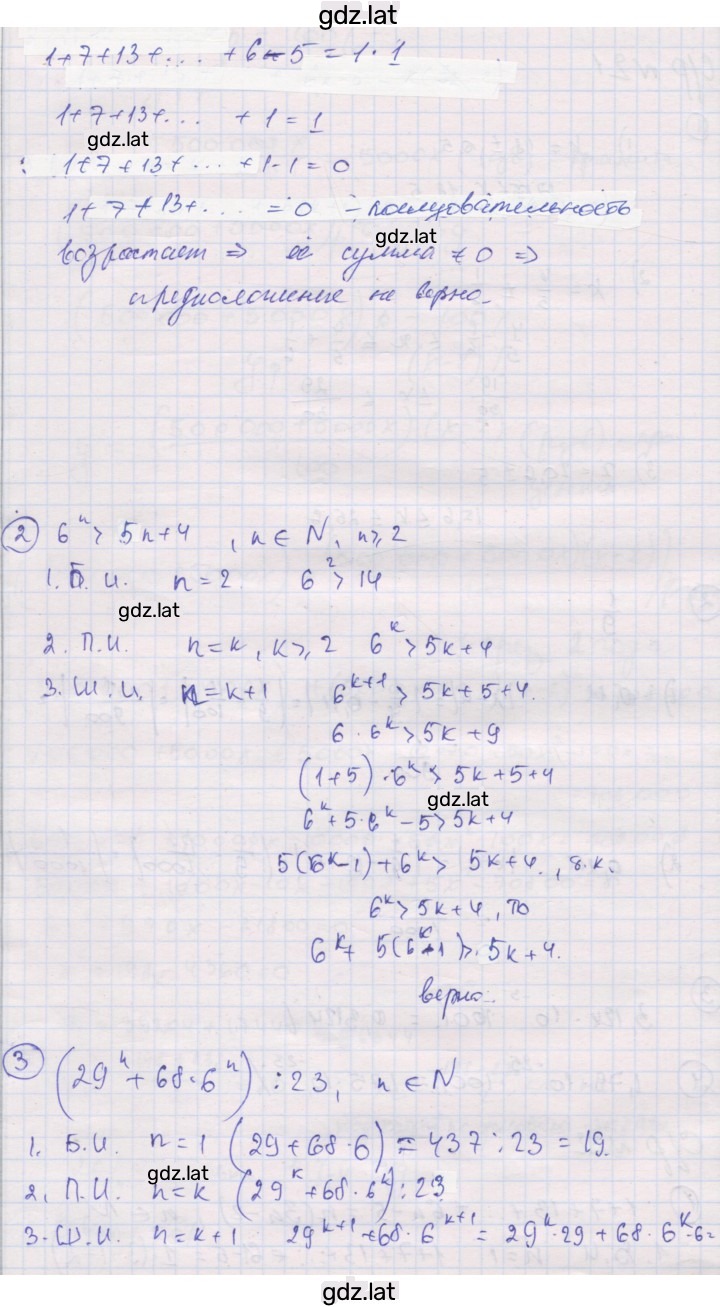 gdz.lat
1+7+13+... +6-5=1·1
1+7+13+... +1=1
gdz.lat
: 1+7+13+... +1-1=0
1+7+13+... =0 - последовательность
gdz.lat
возрастает ⇒ её сумма ≠0 ⇒
предположение не верно.
② 6ⁿ> 5n+4 , n∈N, n≥2
1. Б. И. n=2. 6²>14
gdz.lat
2. П.И. n=k, k≥2 6ᵏ>5k+4
3. Ш.И. n=k+1 6ᵏ⁺¹>5k+5+4.
6·6ᵏ>5k+9
(1+5)·6ᵏ>5k+5+4
gdz.lat
6ᵏ+5·6ᵏ-5>5k+4
5(6ᵏ-1)+6ᵏ> 5k+4., т.к.
6ᵏ>5k+4, то
6ᵏ+ 5(6ᵏ-1)>5k+4.
верно.
③ (29ⁿ+68·6ⁿ)⋮23, n∈N
1. Б.И. n=1 (29+68·6)=437:23=19.
gdz.lat
2. П.И. n=k (29ᵏ+68·6ᵏ)⋮23
3. Ш.И. n=k+1 29ᵏ⁺¹+68·6ᵏ⁺¹=29ᵏ·29+68·6ᵏ·6=
gdz.lat